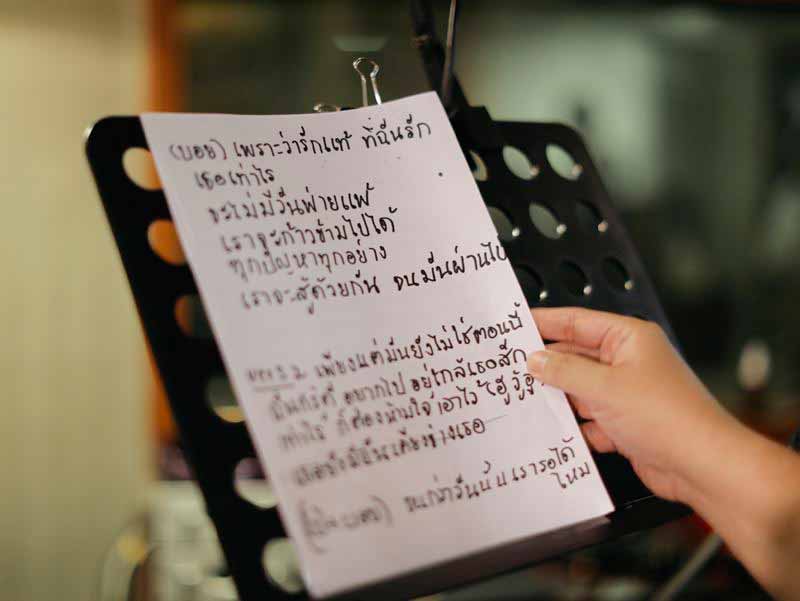 (บอย) เพราะว่ารักแท้ ที่ฉันรัก
เธอเท่าไร
จะไม่มีวันพ่ายแพ้
เราจะก้าวข้ามไปได้
ทุกปัญหาทุกอย่าง
เราจะสู้ด้วยกัน จนมันผ่านไป
2 เพียงแต่มันยังไม่ใช่ตอนนี้
อยากไป อยู่ใกล้เธอสัก
เท่าไร ก็ต้องห้ามใจ เอาไว้
เคียงข้างเธอ
จนกว่าวันนั้น เรารอได้
ไหม